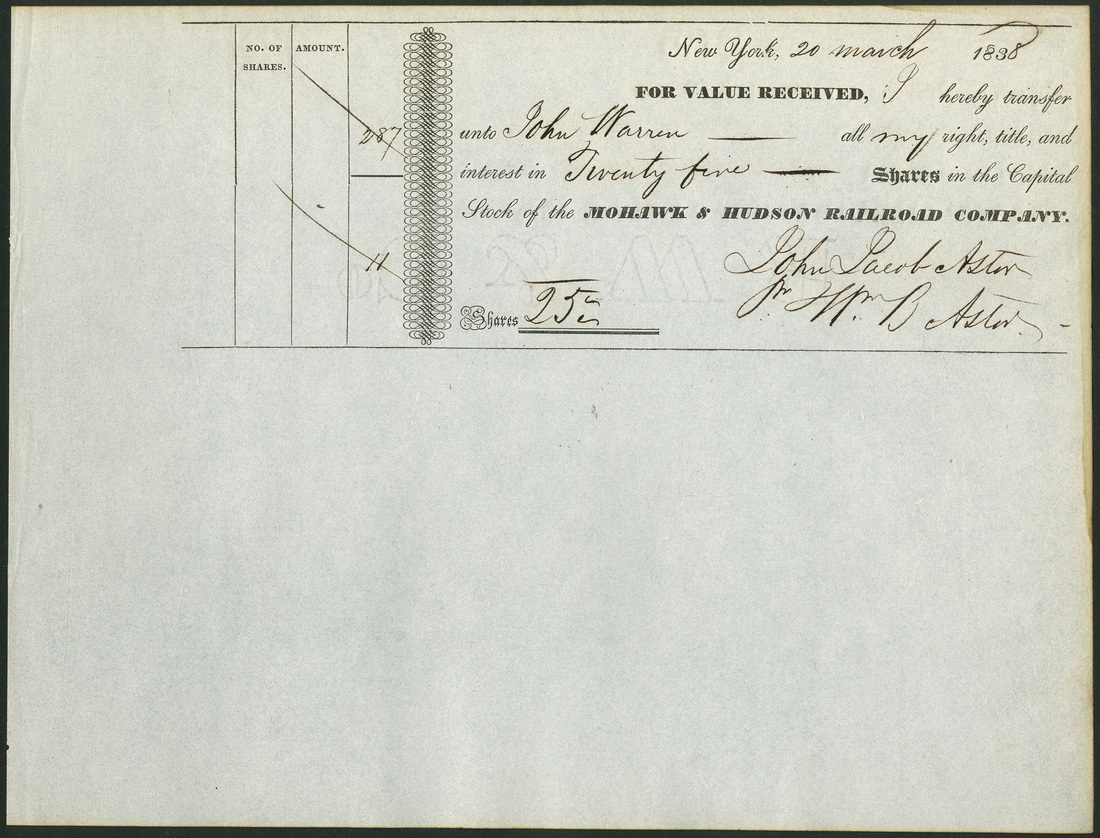 NO. OF SHARES.
AMOUNT.
287
11
New York, 20 march 1838
FOR VALUE RECEIVED, I hereby transfer
unto John Warren all my right, title, and
interest in Twenty five Shares in the Capital
Stock of the MOHAWK & HUDSON RAILROAD COMPANY.
John Jacob Astor
pr Wm B Astor
Shares 25